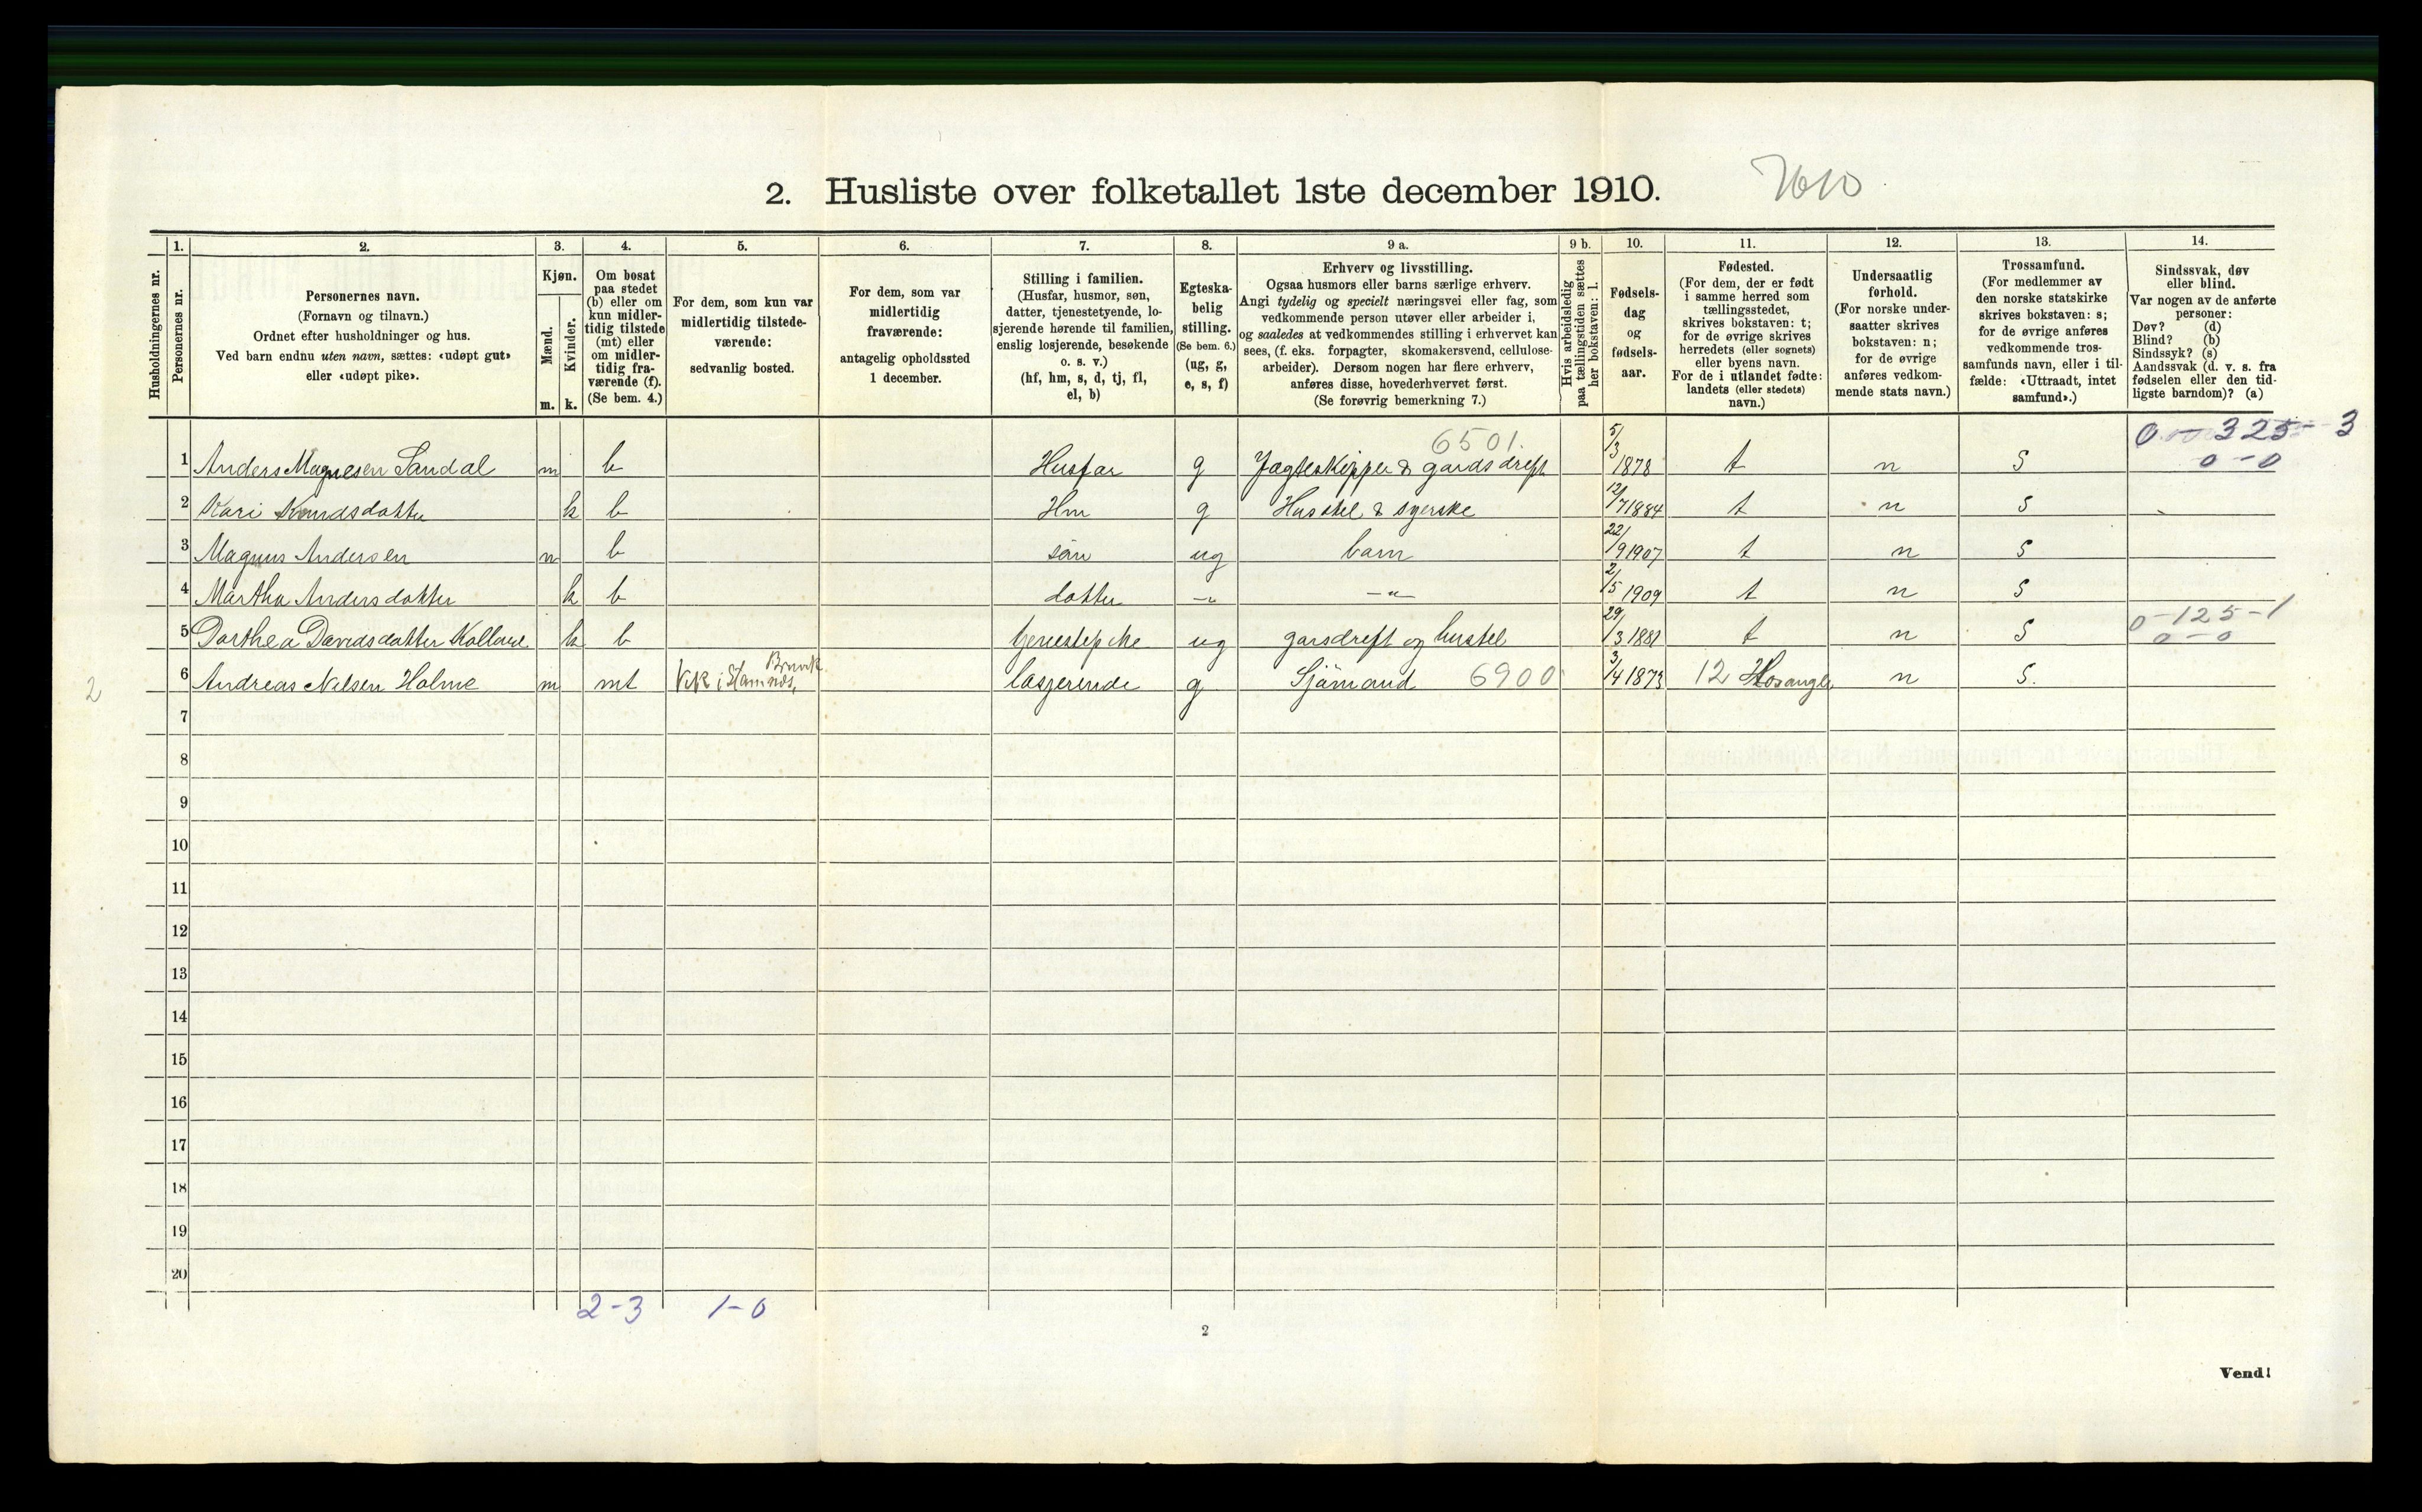 2. Husliste over folketallet 1ste december 1910.
Husholdningernes nr.
1.
Personernes nr.
2.
Personernes navn.
(Fornavn og tilnavn.)
Ordnet efter husholdninger og hus.
Ved barn endnu uten navn, sættes: «udøpt gut»
eller «udøpt pike».
3.
Kjøn.
Mænd.
Kvinder.
m. k.
4.
Om bosat
paa stedet
(b) eller om
kun midler-
tidig tilstede
(mt) eller
om midler-
tidig fra-
værende (f).
(Se bem. 4.)
5.
For dem, som kun var
midlertidig tilstede-
værende:
sedvanlig bosted.
6.
For dem, som var
midlertidig
fraværende:
antagelig opholdssted
1 december.
7.
Stilling i familien.
(Husfar, husmor, søn,
datter, tjenestetyende, lo-
sjerende hørende til familien,
enslig losjerende, besøkende
o. s. v.)
(hf, hm, s, d, tj, fl,
el, b)
8.
Egteska-
belig
stilling.
(Se bem. 6.)
(ug, g,
e, s, f)
9 a.
Erhverv og livsstilling.
Ogsaa husmors eller barns særlige erhverv.
Angi tydelig og specielt næringsvei eller fag, som
vedkommende person utøver eller arbeider i,
og saaledes at vedkommendes stilling i erhvervet kan
sees, (f. eks. forpagter, skomakersvend, cellulose-
arbeider). Dersom nogen har flere erhverv,
anføres disse, hovederhvervet først.
(Se forøvrig bemerkning 7.)
9 b.
Hvis arbeidsledig
paa tællingstiden sættes
her bokstaven: l.
10.
Fødsels-
dag
og
fødsels-
aar.
11.
Fødested.
(For dem, der er født
i samme herred som
tællingsstedet,
skrives bokstaven: t;
for de øvrige skrives
herredets (eller sognets)
eller byens navn.
For de i utlandet fødte:
landets (eller stedets)
navn.)
12.
Undersaatlig
forhold.
(For norske under-
saatter skrives
bokstaven: n;
for de øvrige
anføres vedkom-
mende stats navn.)
13.
Trossamfund.
(For medlemmer av
den norske statskirke
skrives bokstaven: s;
for de øvrige anføres
vedkommende tros-
samfunds navn, eller i til-
fælde: «Uttraadt, intet
samfund».)
14.
Sindssvak, døv
eller blind.
Var nogen av de anførte
personer:
Døv? (d)
Blind? (b)
Sindssyk? (s)
Aandssvak (d. v. s. fra
fødselen eller den tid-
ligste barndom)? (a)
6501. 0 - 325 - 3
1 Anders Magnesen Sandal m b Husfar g Jagteskipper & gardsdreft 5/3 1878 t n S 0 - 0
2 Kari Knudsdatter k b Hm g Husstel & syerske 12/7 1884 t n S
3 Magnus Andersen m b sön ug barn 22/9 1907 t n S
4 Martha Andersdatter k b datter -"- -"- 2/5 1909 t n S
0 - 125 - 1
5 Dorthea Davidsdatter k b tjenestepike ug garsdreft og hustel 29/3 1881 t n S 0 - 0
Bruvik
6 Andreas Nelsen Holme m mt Vik i Stamnes, losjerende g Sjömand 6900 3/4 1873 12 Hosanger n S.
2
7
8
9
10
11
12
13
14
15
16
17
18
19
20
2 - 3 1 - 0
2
Vend!